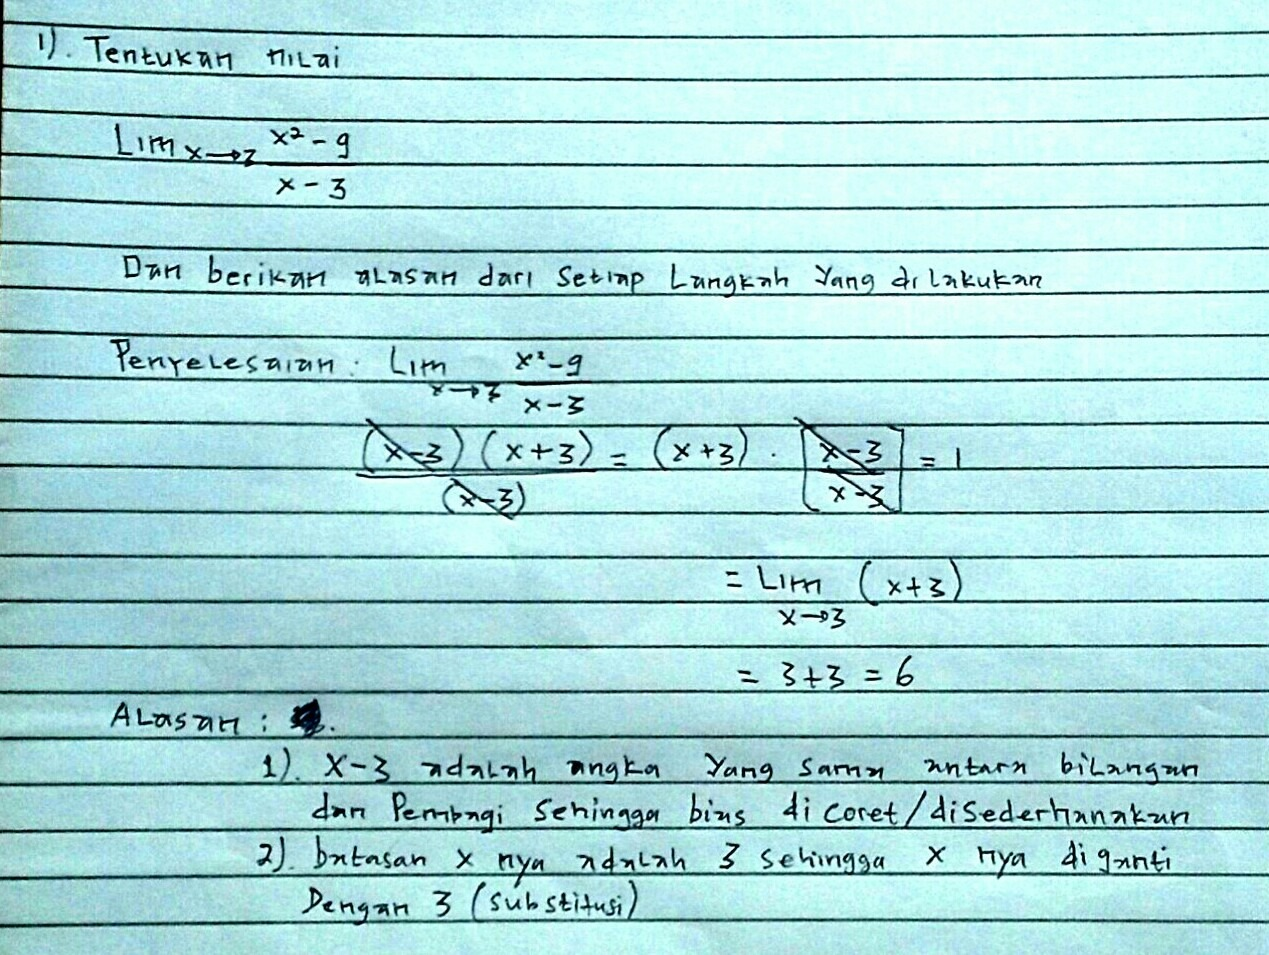 1). Tentukan nilai
Lim x→3 x² - 9
x - 3
Dan berikan alasan dari setiap Langkah Yang di lakukan
Penyelesaian : Lim x²-9
x→3 x-3
(x-3) (x+3) = (x+3) . [x-3] = 1
(x-3) x-3
= Lim (x+3)
x→3
= 3+3 = 6
ALasan :
1). X-3 adalah angka Yang sama antara biLangan
dan Pembagi Sehingga bias di coret/disederhanakan
2). batasan x nya adalah 3 sehingga x nya di ganti
Dengan 3 (substitusi)